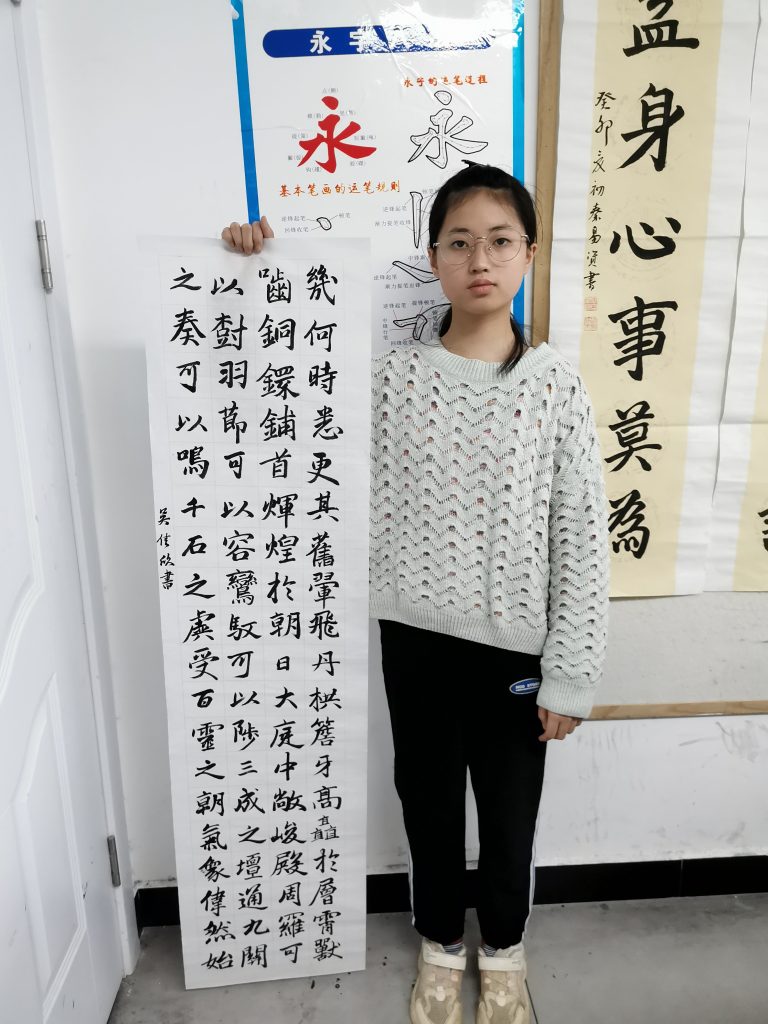 永字
永字的运笔过程
永
永
基本笔画的运笔规则
逆锋起笔
顿笔
回锋收笔
幾何時悉更其舊翬飛丹栱簷牙高矗於層霄獸
嚙銅鐶鋪首輝煌於朝日大庭中敞峻殿周羅可
以樹羽節可以容鸞馭可以陟三成之壇通九關
之奏可以鳴千石之虡受百靈之朝氣象偉然始
吳佳欣書
益身心事莫為
癸卯亥初秦易書